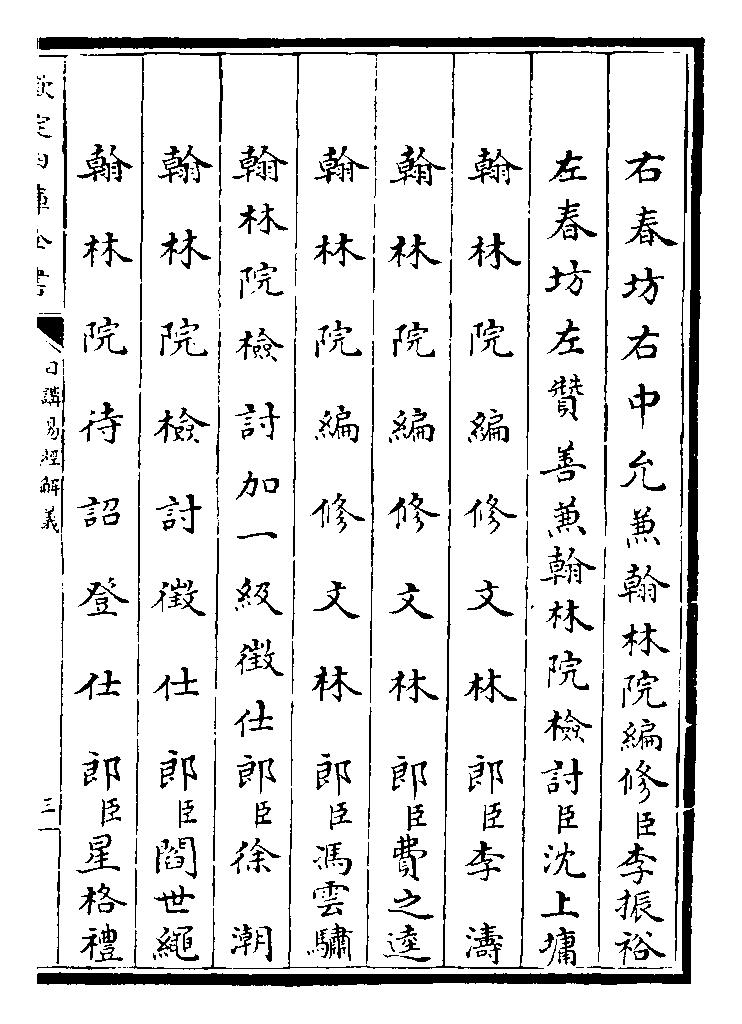 右春坊右中允兼翰林院編修臣李振裕
左春坊左贊善兼翰林院檢討臣沈上墉
翰林院編修文林郎臣李濤
翰林院編修文林郎臣費之逵
翰林院編修文林郎臣馮雲驌
翰林院檢討加一級徵仕郎臣徐潮
翰林院檢討徵仕郎臣閻世繩
翰林院待詔登仕郎臣星格禮
欽定四庫全書
日講易經解義
三